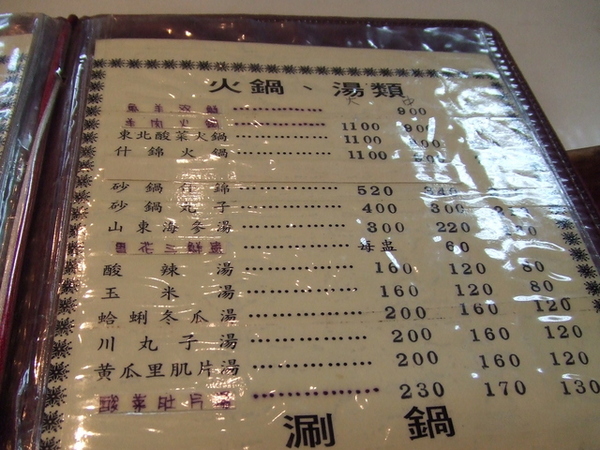 火鍋、湯類
大 中
900
羊肉火鍋 1100 900
東北酸菜火鍋 1100 900
什錦火鍋 1100 800
砂鍋什錦 520 340
砂鍋丸子 400 300
山東海參湯 300 220
雪花三鮮羹 每盅 60
酸辣湯 160 120 80
玉米湯 160 120 80
蛤蜊冬瓜湯 200 160 120
川丸子湯 200 160 120
黃瓜里肌片湯 200 160 120
酸菜肚片湯 230 170 130
涮鍋